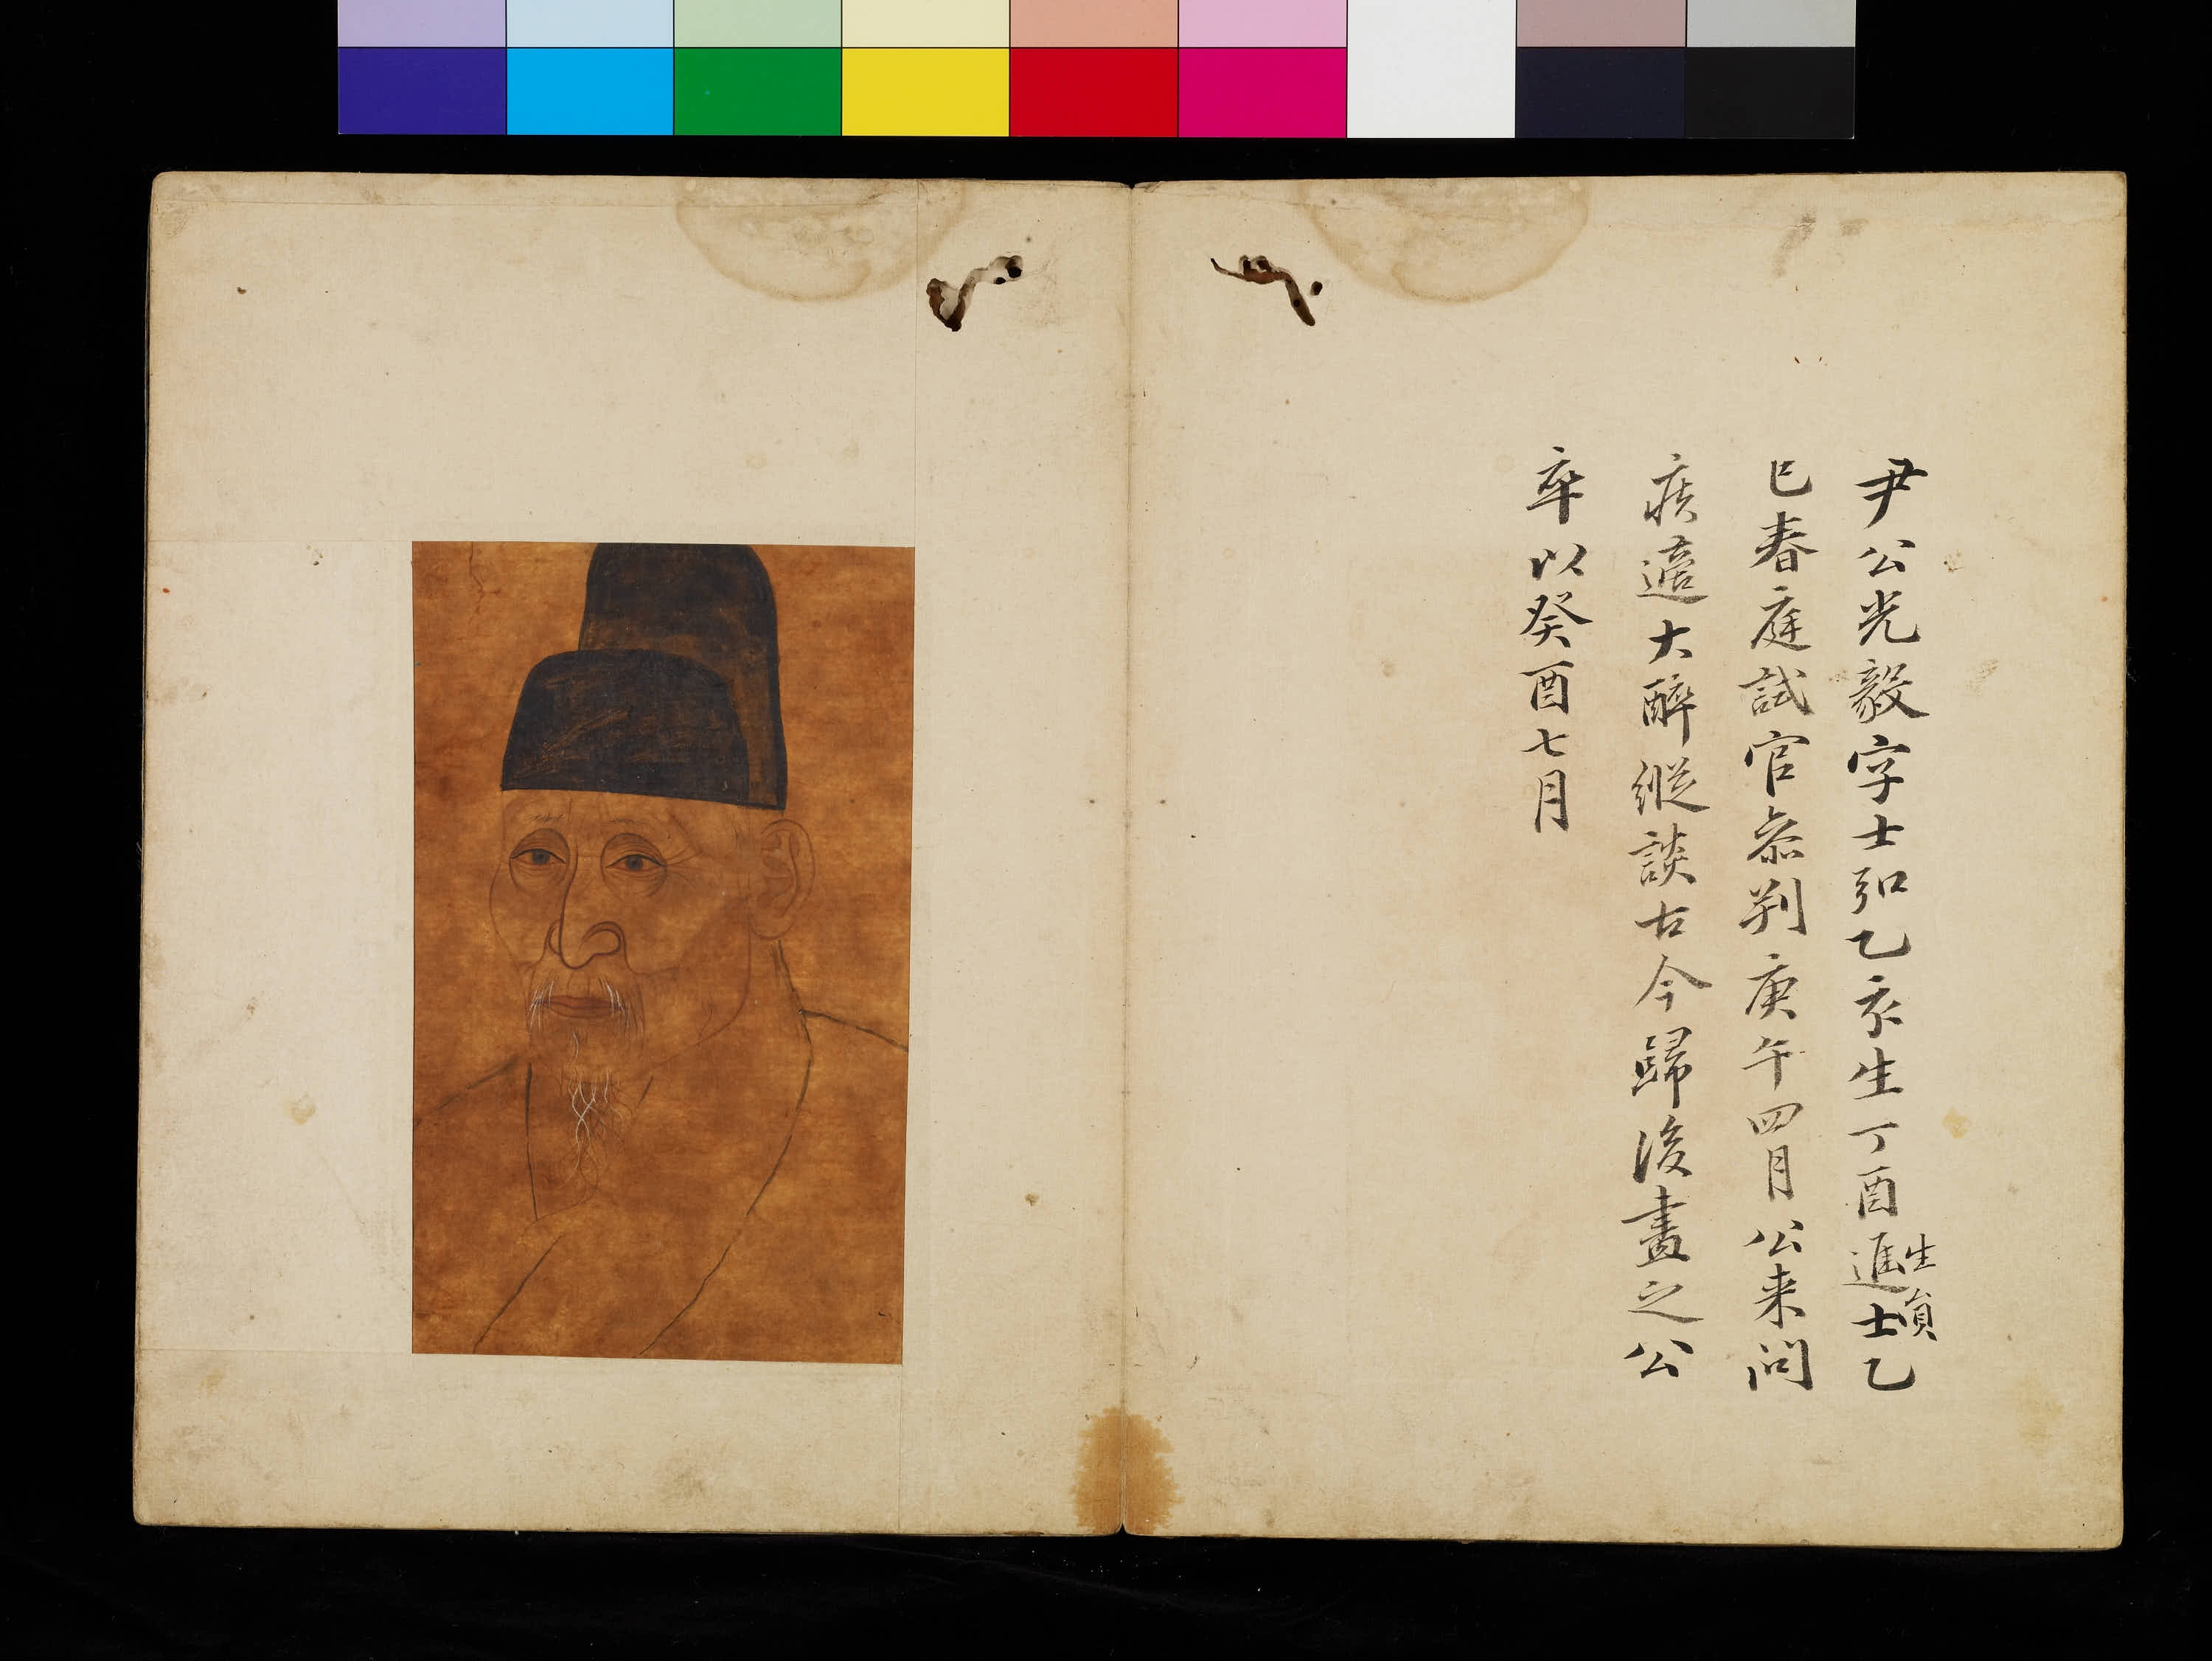 尹公光毅字士弘乙亥生丁酉生員進士乙
巳春庭試官參判庚午四月公来问
疾適大醉縱談古今歸後畫之公
卒以癸酉七月